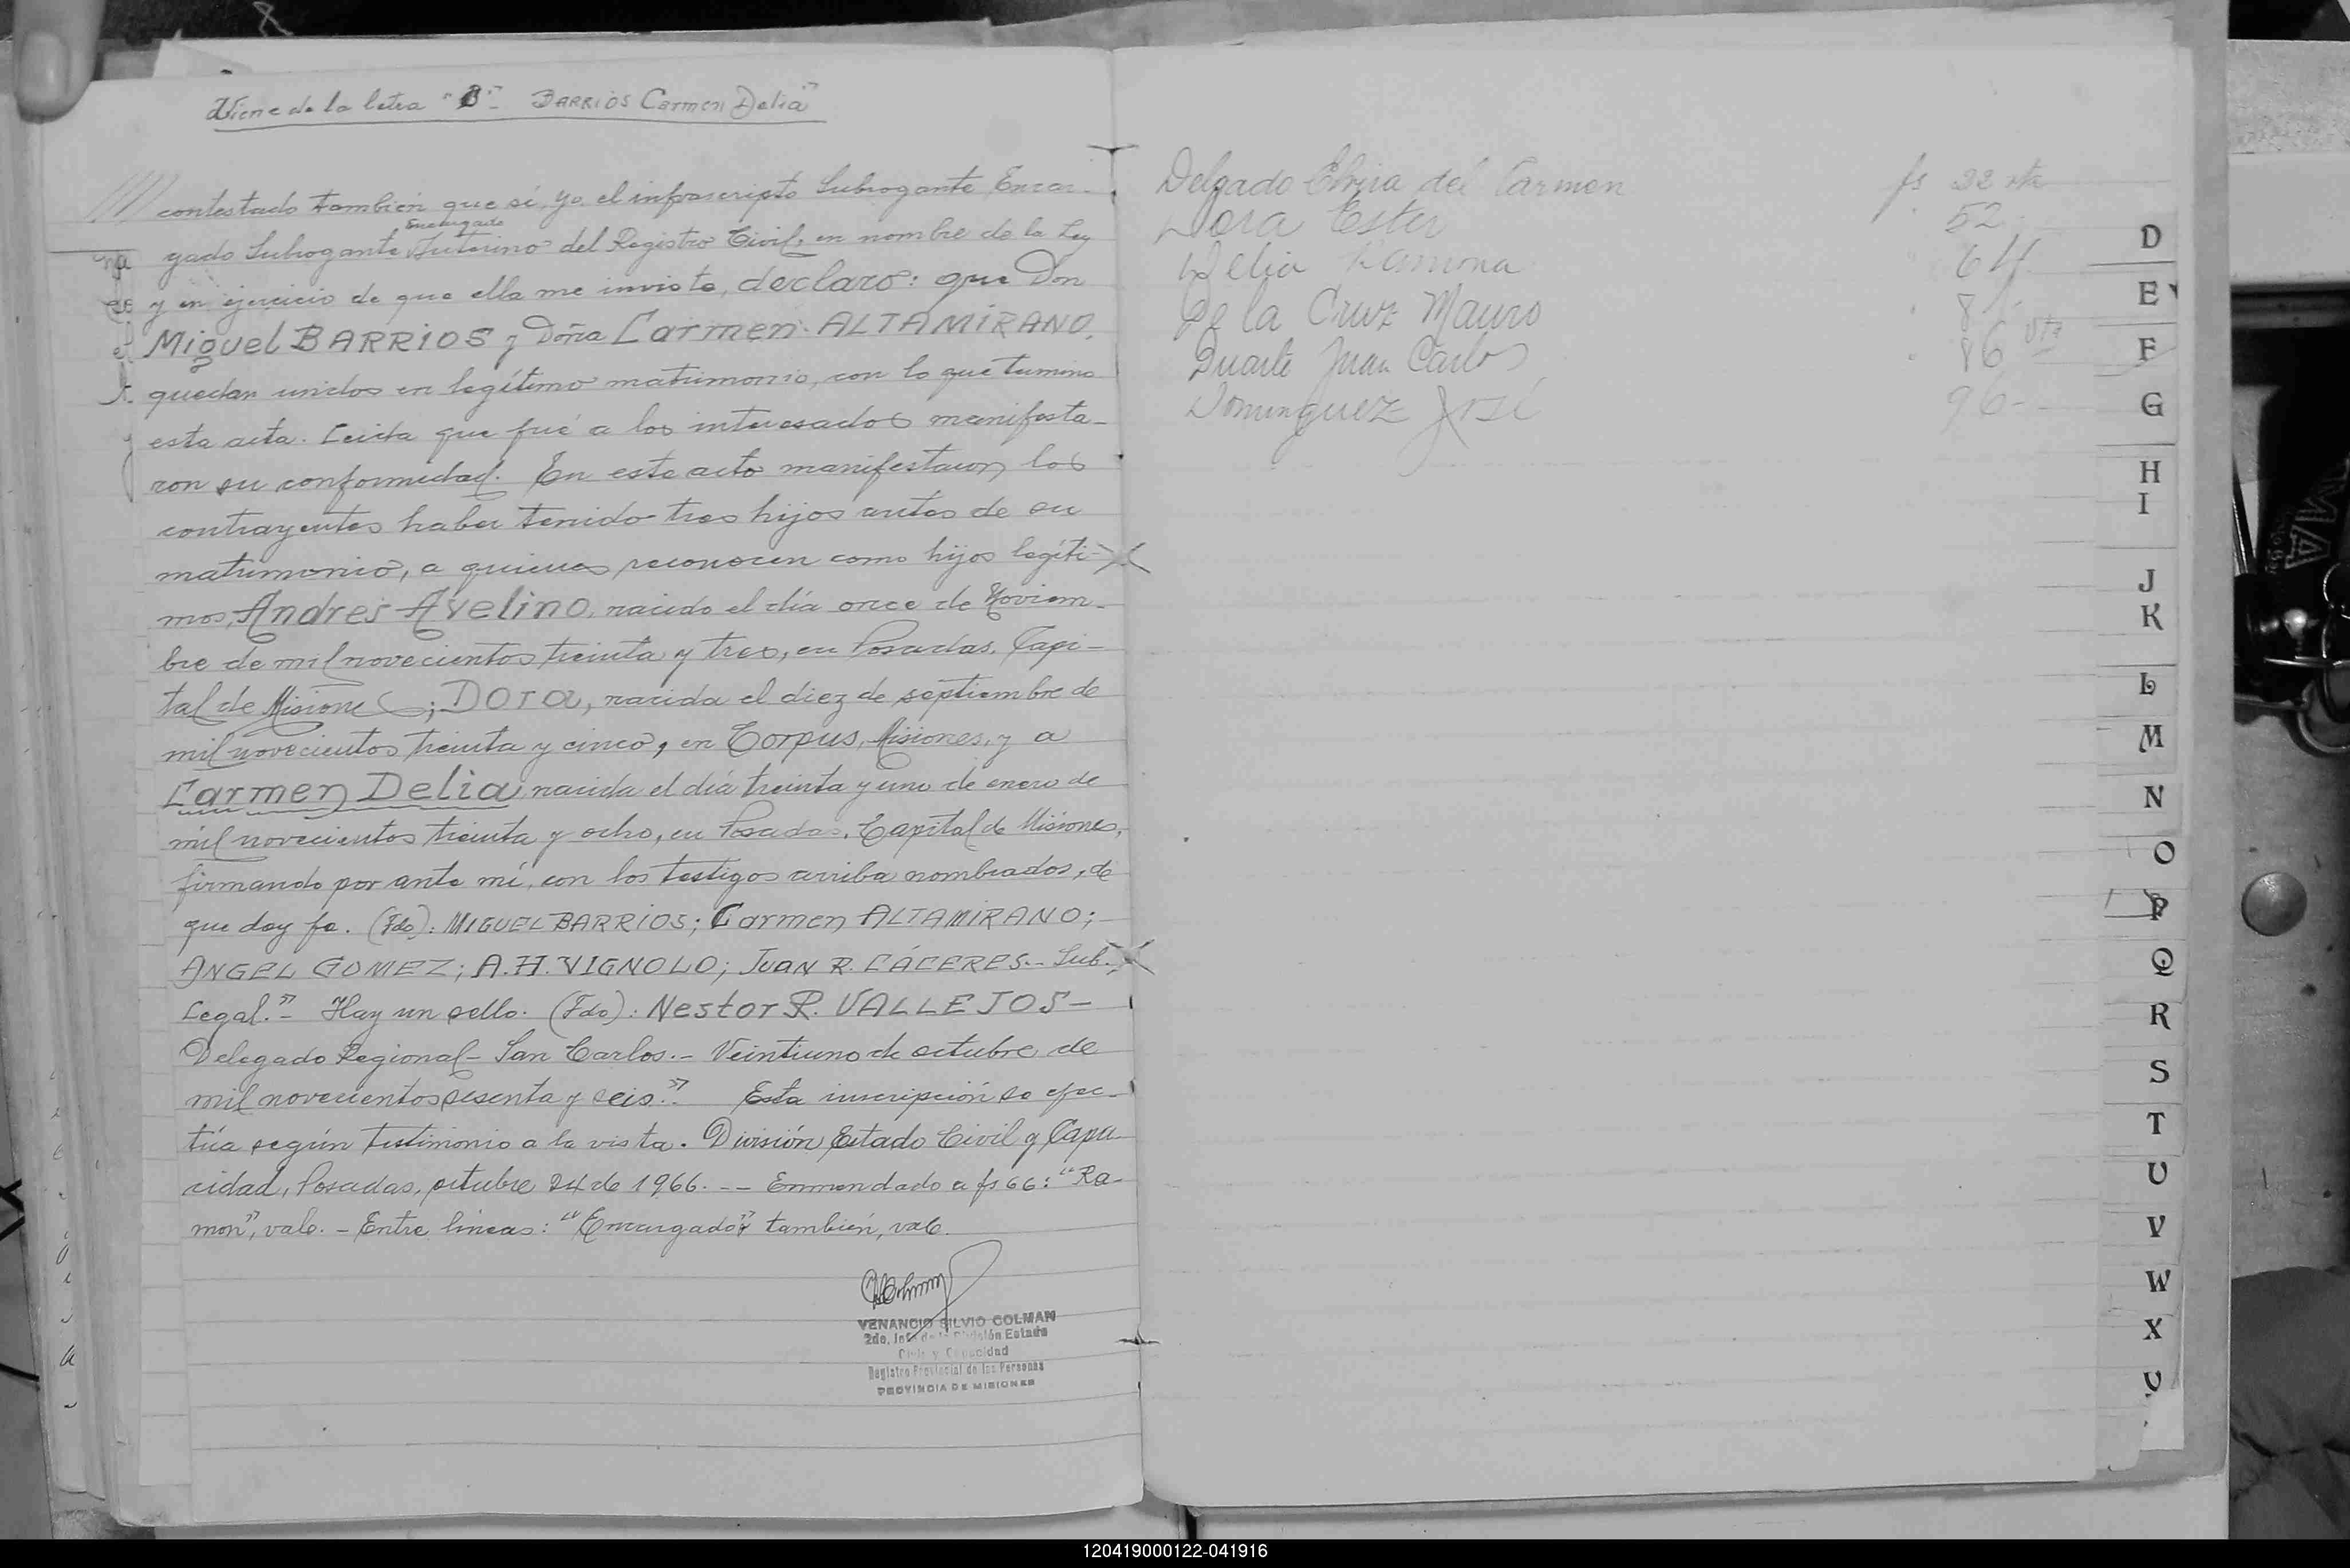 Viene de la letra "B"- BARRIOS Carmen Delia"
contestado también que sí, yo, el infrascripto Subrogante Encar-
Encargado
gado Subrogante Interino del Registro Civil, en nombre de la Ley
y en ejercicio de que ella me inviste, declaro: que Don
Miguel BARRIOS y Doña Carmen ALTAMIRANO,
quedan unidos en legítimo matrimonio, con lo que termino
esta acta. Leida que fué a los interesados manifesta-
ron su conformidad. En este acto manifestaron los
contrayentes haber tenido tres hijos antes de su
matrimonio, a quienes reconocen como hijos legíti-
mos, Andres Avelino, nacido el día once de Noviem-
bre de mil novecientos treinta y tres, en Posadas, Capi-
tal de Misiones; Dora, nacida el diez de septiembre de
mil novecientos treinta y cinco, en Corpus, Misiones, y a
Carmen Delia, nacida el día treinta y uno de enero de
mil novecientos treinta y ocho, en Posadas, Capital de Misiones,
firmando por ante mí, con los testigos arriba nombrados, de
que doy fe. (Fdo): MIGUEL BARRIOS; Carmen ALTAMIRANO;
ANGEL GOMEZ; A.H. VIGNOLO; Juan R. CÁCERES.- Sub.
Legal."- Hay un sello. (Fdo): Nestor R. VALLEJOS-
Delegado Regional- San Carlos.- Veintiuno de octubre de
mil novecientos sesenta y seis."- Esta inscripción se efec-
túa según testimonio a la vista. División Estado Civil y Capa-
cidad, Posadas, octubre 24 de 1966. -- Enmendado a fs 66: "Ra-
mon", vale. - Entre líneas: "Encargado" también, vale.
VENANCIO SILVIO COLMAN
2do. Jefe de la División Estado
Civil y Capacidad
Registro Provincial de las Personas
PROVINCIA DE MISIONES
Delgado Elvira del Carmen fs 22 vta
Dora Ester " 52
Delia Ramona " 64
De la Cruz Mauro " 81-
Duarte Juan Carlos " 86 vta
Dominguez José 96-
D
E
F
G
H
I
J
K
L
M
N
O
P
Q
R
S
T
U
V
W
X
120419000122-041916